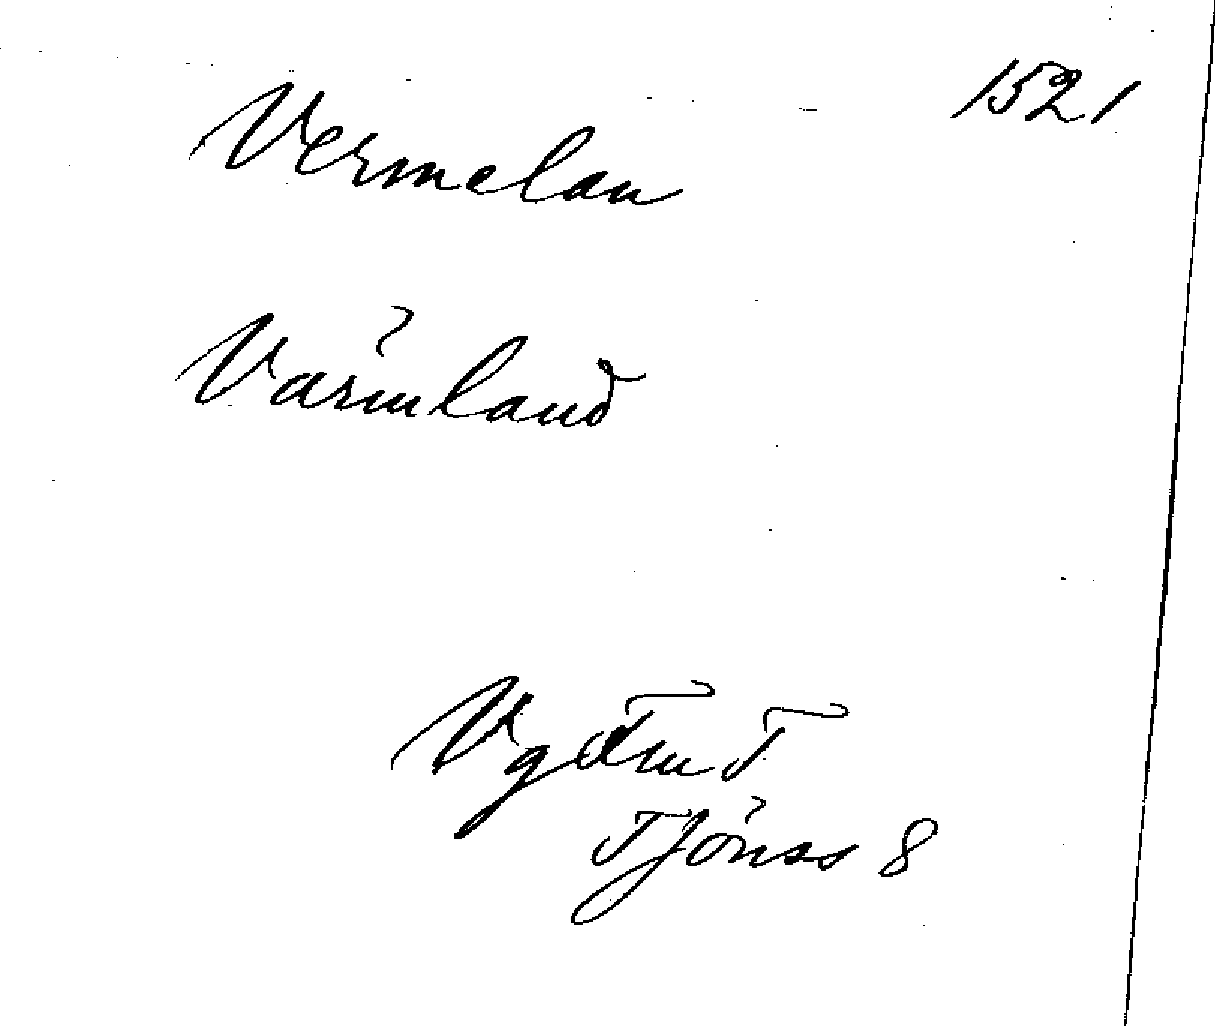 1521
Vermelan
Värmland
Vg Tm T
Tjönss 8